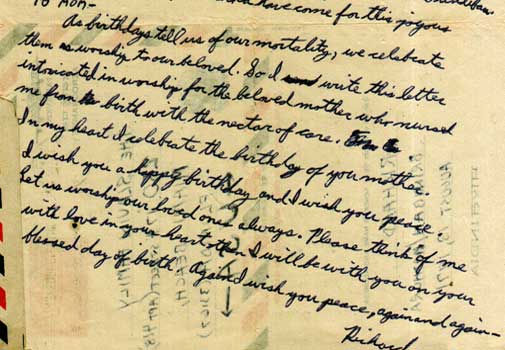 have come for this joyous
To ADA-
As birthdays tell us of our mortality, we celebrate
them as worship to our beloved. So I write this letter
intoxicated in worship for the beloved mother who nursed
me from birth with the nectar of care.
In my heart I celebrate the birthday of you mother
I wish you a happy birthday and I wish you peace.
Let us worship our loved ones always. Please think of me
with love in your heart then I will be with you on your
blessed day of birth. Again I wish you peace, again and again-
Richard